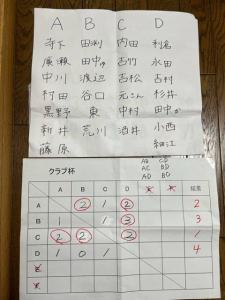 A B C D
寺下 田渕 内田 利名
廣瀬 田中ゆ 古竹 永田
中川 渡辺 古松 古村
村田 谷口 元さん 杉井
黒野 東 中村 田中か
新井 荒川 酒井 小西
藤原 細江
AB CD
AC BD
AD BC
クラブ杯
A B C D 結果
A 2 1 2 2
B 1 1 3 3
C 2 2 2 1
D 1 0 1 4